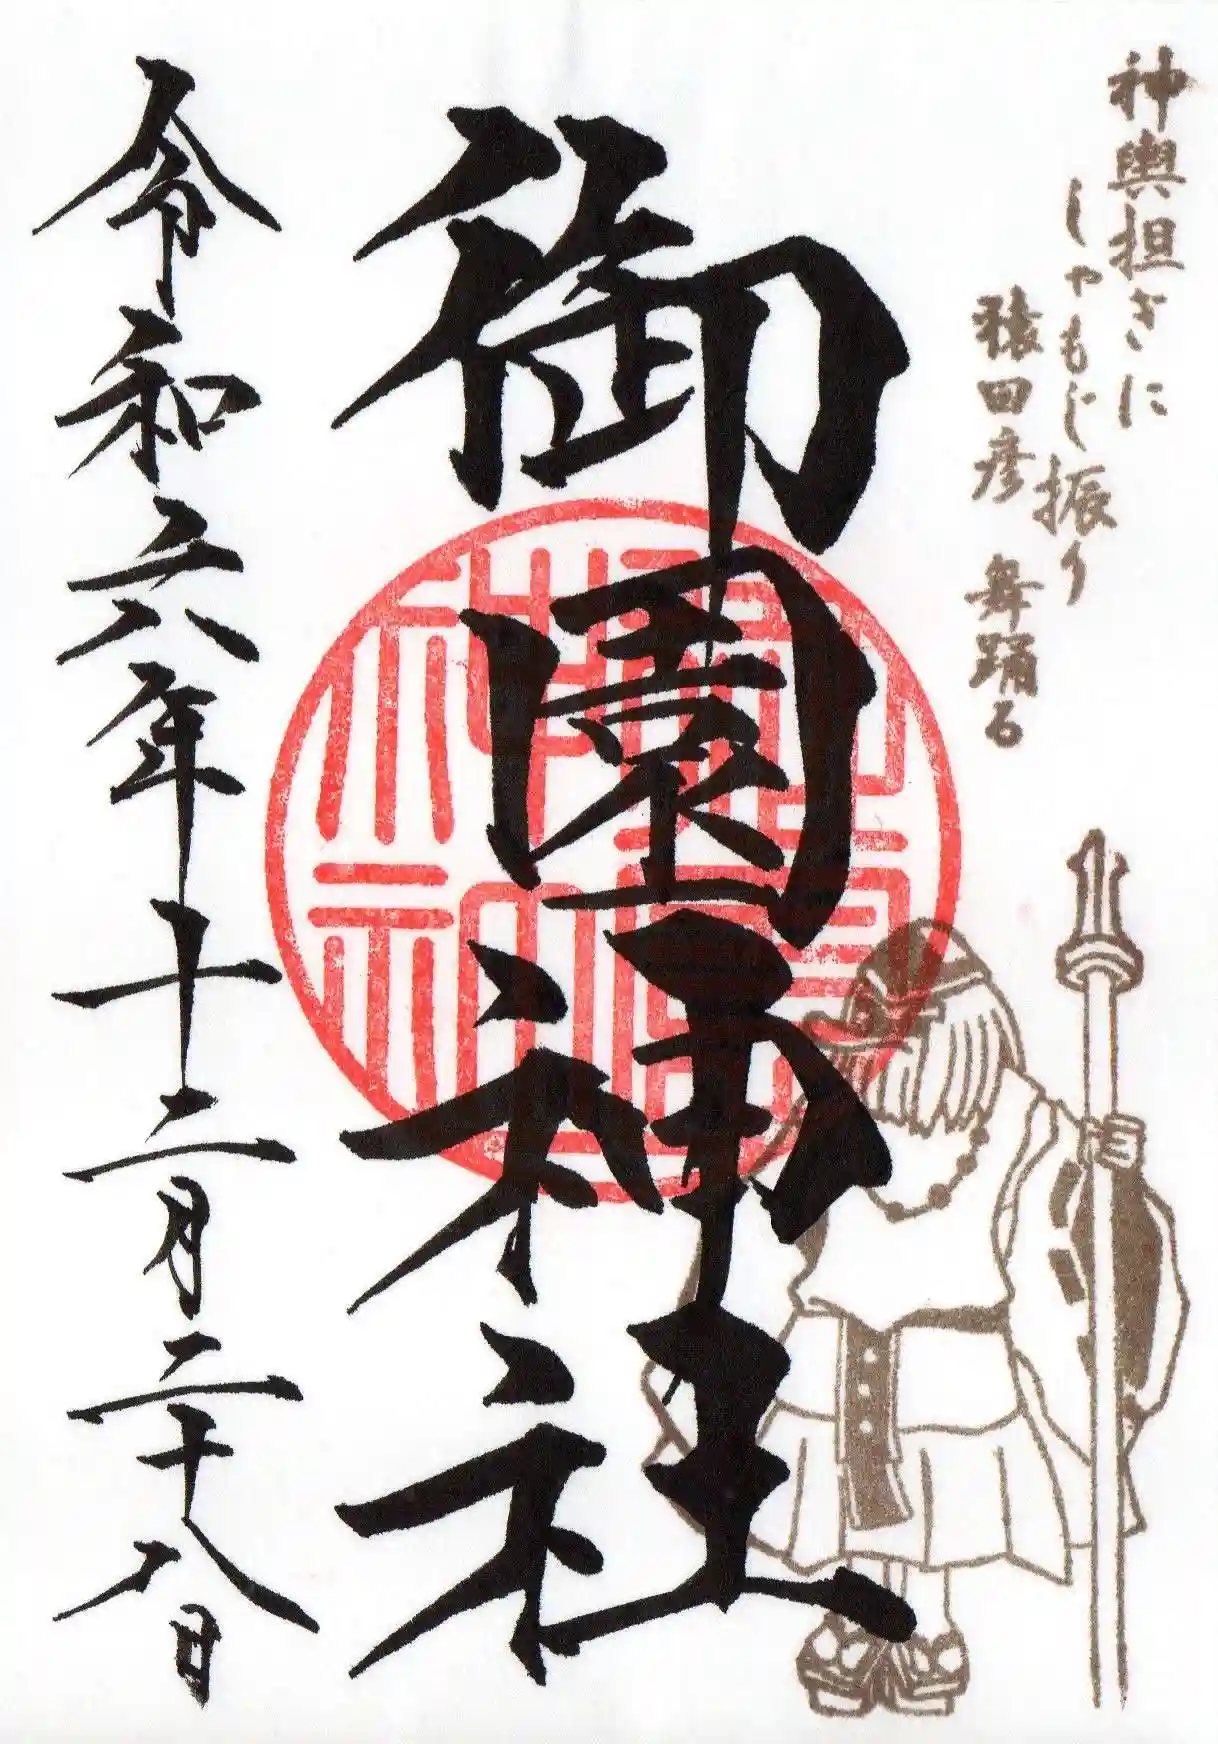 神輿担ぎに
しゃもじ振り
猿田彦 舞踊る
御園神社
令和六年十二月二十八日